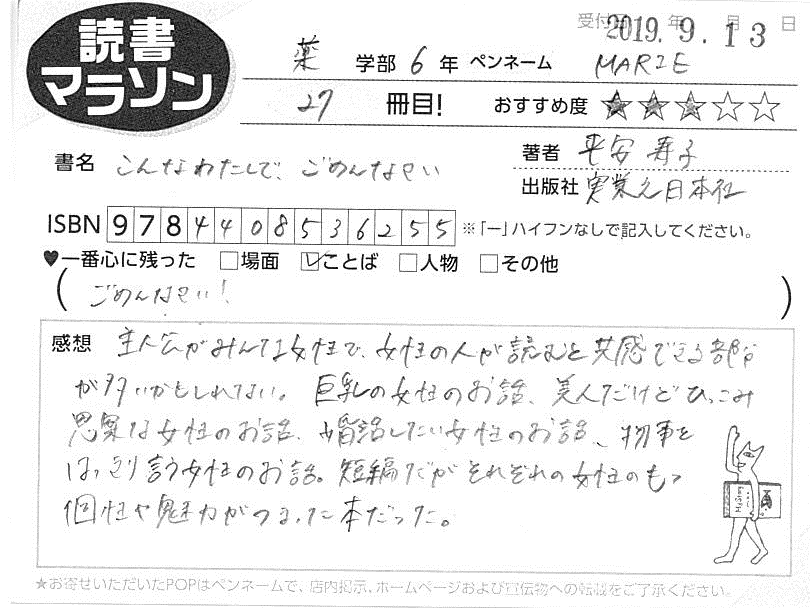 読書
マラソン
受付 2019.年9.月13日
薬 学部 6 年 ペンネーム MARIE
27 冊目! おすすめ度 ★★★☆☆
書名 こんなわたしで、ごめんなさい
著者 平安寿子
出版社 実業之日本社
ISBN 9784408536255 ※「ー」ハイフンなしで記入してください。
♥一番心に残った □場面 ☑ことば □人物 □その他
(ごめんなさい!)
感想 主人公がみんな女性で、女性の人が読むと共感できる部分
が多いかもしれない。巨乳の女性のお話、美人だけどひっこみ
思案な女性のお話、婚活したい女性のお話、物事を
はっきり言う女性のお話。短編だがそれぞれの女性のもつ
個性や魅力がつまった本だった。
★お寄せいただいたPOPはペンネームで、店内掲示、ホームページおよび宣伝物への転載をご了承ください。